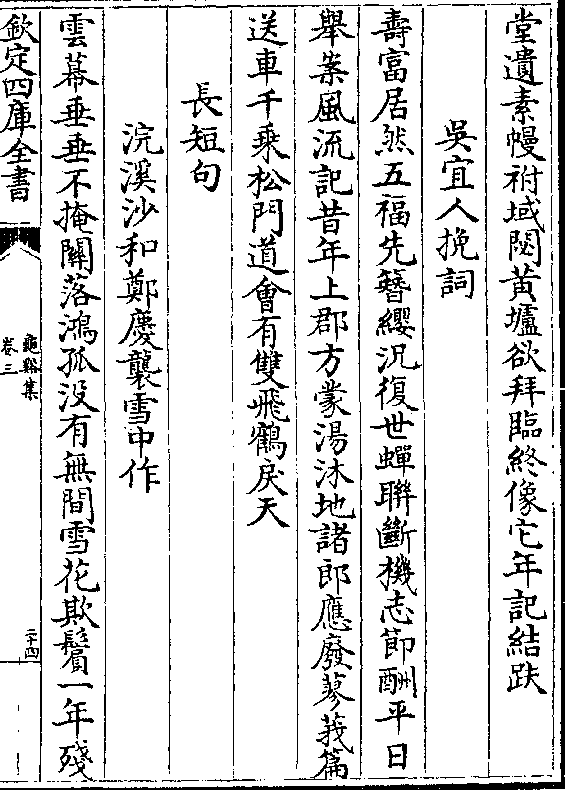 堂遺素幔祔域閟黄壚欲拜臨終像它年記結趺
吳宜人挽詞
壽富居然五福先簪纓況復世蟬聨斷機志節酬平日
舉案風流記昔年上郡方蒙湯沐地諸郎應廢蓼莪篇
送車千乘松門道會有雙飛鶴戾天
長短句
浣溪沙和鄭慶襲雪中作
雲幕垂垂不掩關落鴻孤没有無間雪花欺鬢一年殘
欽定四庫全書
龜谿集
卷三
二十四